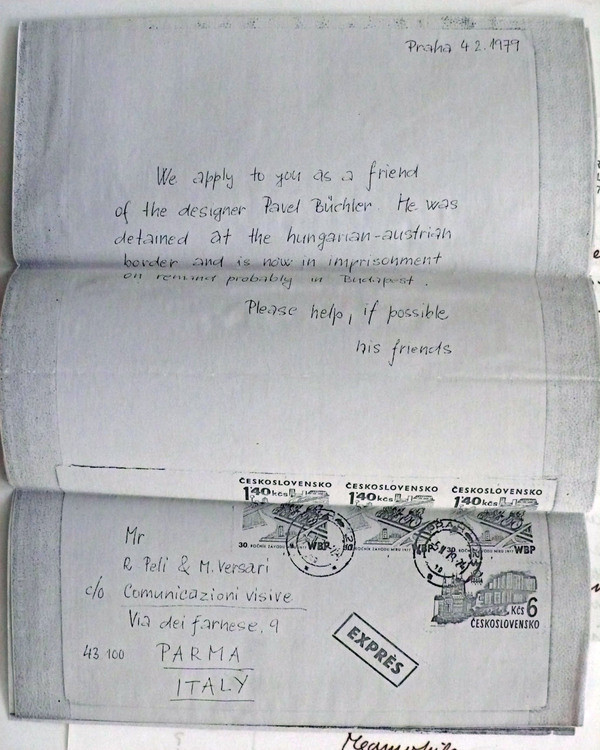 Praha 4 2. 1979
We apply to you as a friend
of the designer Pavel Büchler. He was
detained at the hungarian-austrian
border and is now in imprisonment
on remand probably in Budapest.
Please help, if possible
his friends
ČESKOSLOVENSKO ČESKOSLOVENSKO ČESKOSLOVENSKO
1'40 kčs 1'40 kčs 1'40 kčs
WBP WBP WBP
Mr
R Peli & M. Versari
c/o Comunicazioni visive
Via dei farnese, 9
43 100 PARMA
ITALY
EXPRÈS
Kčs 6
ČESKOSLOVENSKO
Meanwhile